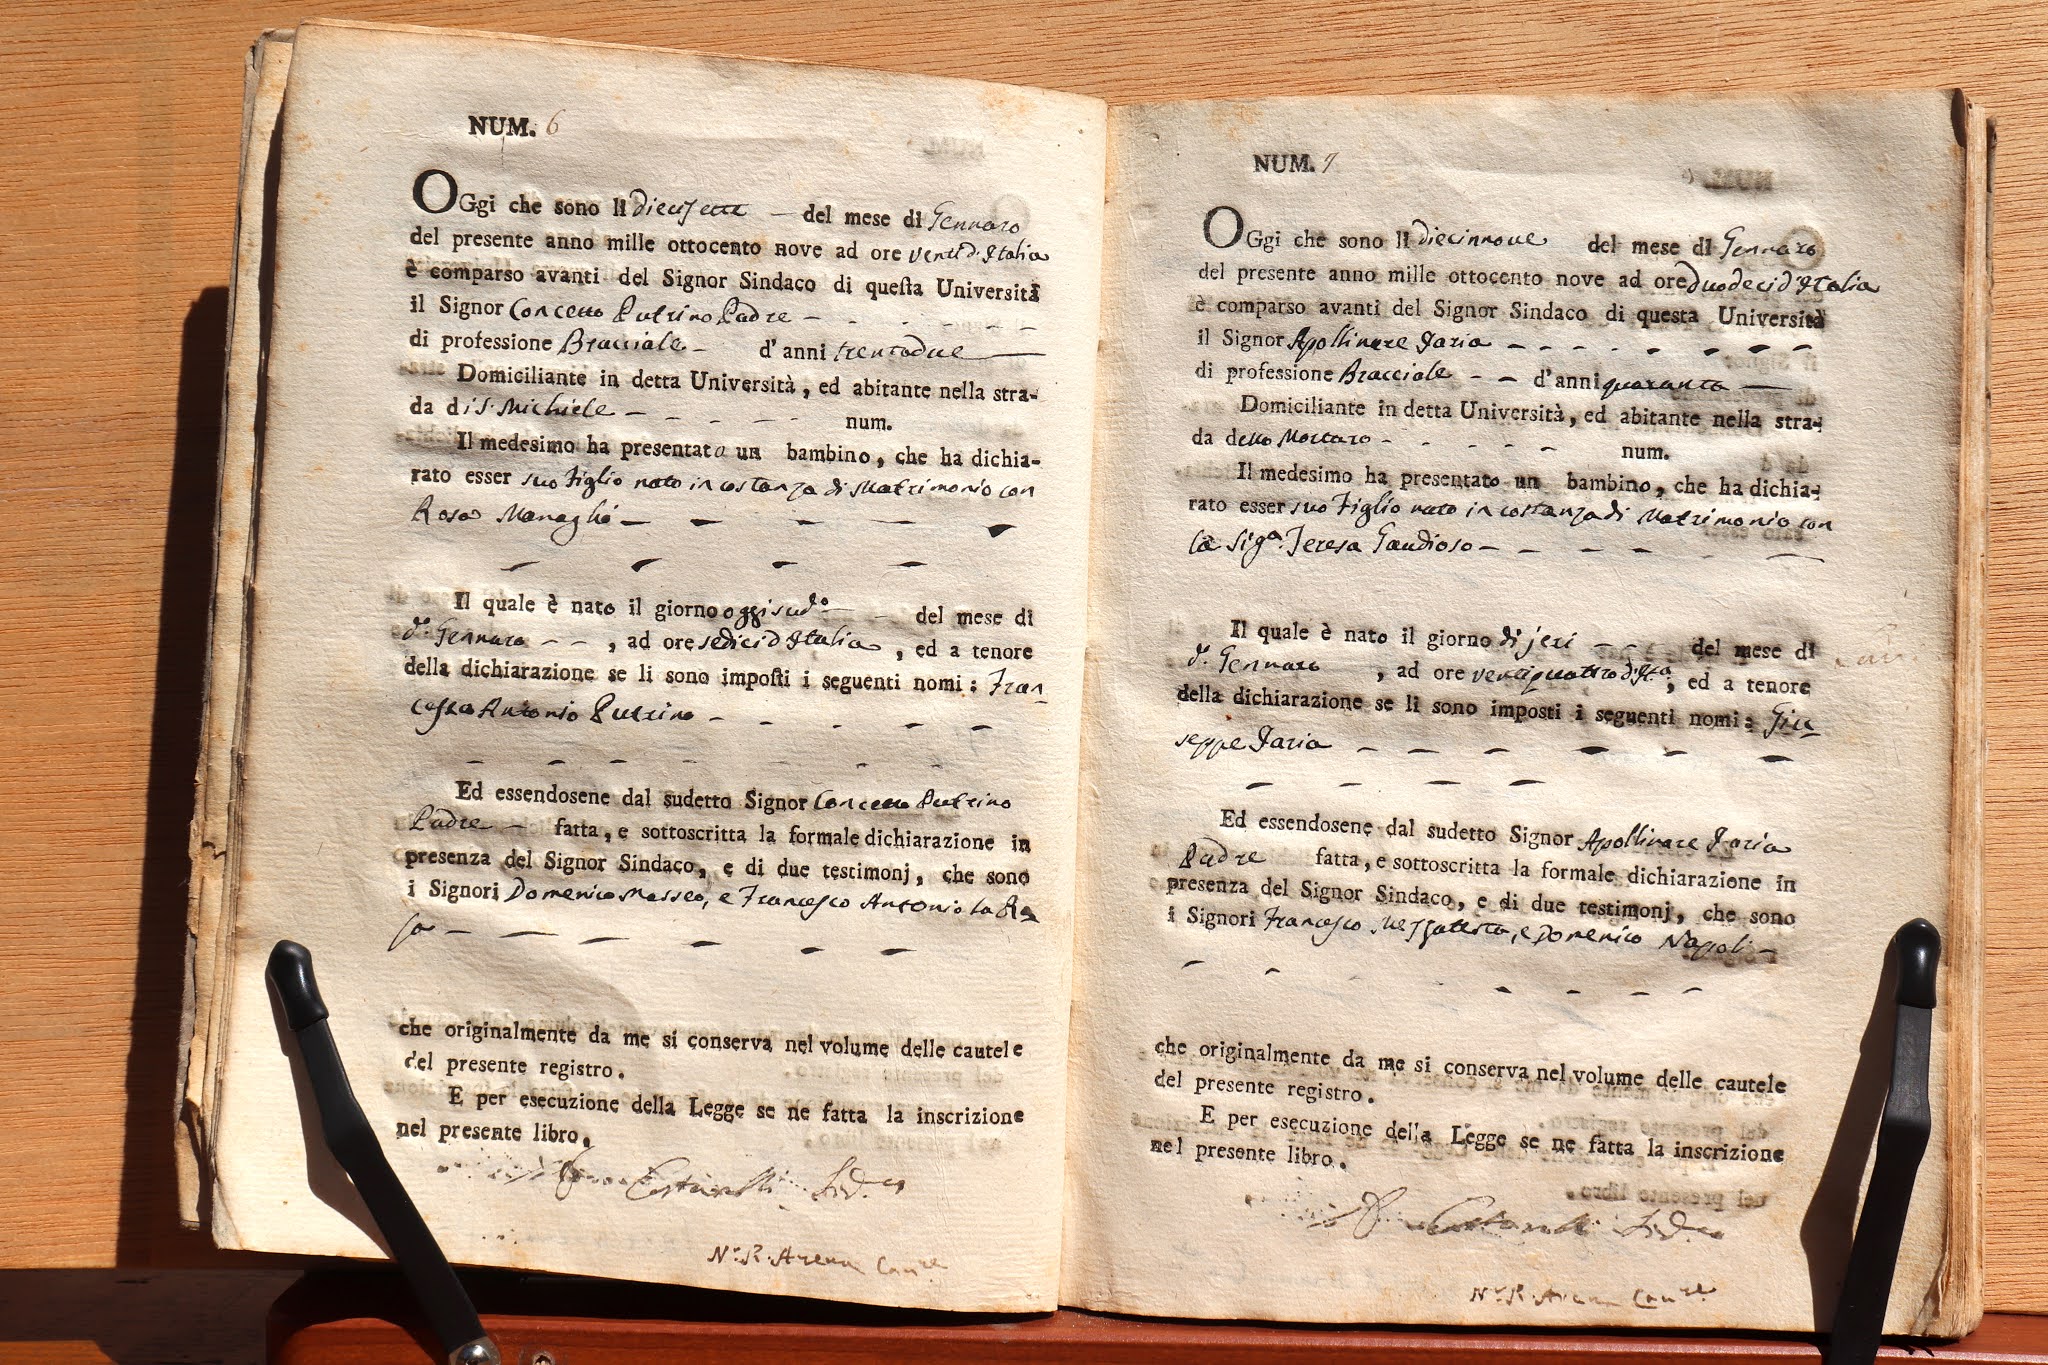 NUM. 6
OGgi che sono li diecisette del mese di Gennaro
del presente anno mille ottocento nove ad ore venti d'Italia
è comparso avanti del Signor Sindaco di questa Università
il Signor Concetto Putrino Padre
di professione Bracciale d'anni trentadue
Domiciliante in detta Università, ed abitante nella stra-
da di S. Michiele num.
Il medesimo ha presentato un bambino, che ha dichia-
rato esser suo Figlio nato in costanza di Matrimonio con
Rosa Managhò
Il quale è nato il giorno oggi sud.o del mese di
d.o Gennaro , ad ore sedici d'Italia , ed a tenore
della dichiarazione se li sono imposti i seguenti nomi: Fran-
cesco Antonio Putrino
Ed essendosene dal sudetto Signor Concetto Putrino
Padre fatta, e sottoscritta la formale dichiarazione in
presenza del Signor Sindaco, e di due testimonj, che sono
i Signori Domenico Masseo, e Francesco Antonio la Ro
sa
che originalmente da me si conserva nel volume delle cautele
del presente registro.
E per esecuzione della Legge se ne fatta la inscrizione
nel presente libro.
N.r R. Arena Canc.re
NUM. 7
OGgi che sono li diecinnove del mese di Gennaro
del presente anno mille ottocento nove ad ore duodeci d'Italia
è comparso avanti del Signor Sindaco di questa Università
il Signor Apollinare Jaria
di professione Bracciale d'anni quaranta
Domiciliante in detta Università, ed abitante nella stra-
da dello Mortaro num.
Il medesimo ha presentato un bambino, che ha dichia-
rato esser suo Figlio nato in costanza di Matrimonio con
la Sig.a Teresa Gaudioso
Il quale è nato il giorno di jeri del mese di
d.o Gennaro , ad ore ventiquattro d'Ita , ed a tenore
della dichiarazione se li sono imposti i seguenti nomi: Giu-
seppe Jaria
Ed essendosene dal sudetto Signor Apollinare Jaria
Padre fatta, e sottoscritta la formale dichiarazione in
presenza del Signor Sindaco, e di due testimonj, che sono
i Signori Francesco Mezzatesta, e Domenico Napoli
che originalmente da me si conserva nel volume delle cautele
del presente registro.
E per esecuzione della Legge se ne fatta la inscrizione
nel presente libro.
N.r R. Arena Canc.re